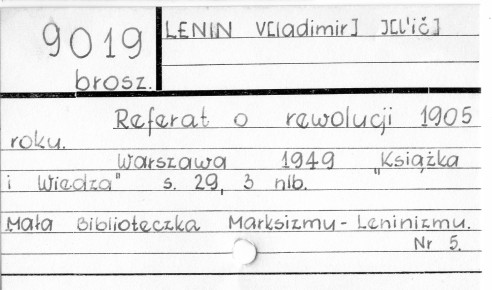 9019
brosz.
LENIN V[ladimir] I[l'ič]
Referat o rewolucji 1905
roku.
Warszawa 1949 "Książka
i Wiedza" s. 29, 3 nlb.
Mała Biblioteczka Marksizmu-Leninizmu.
Nr 5.